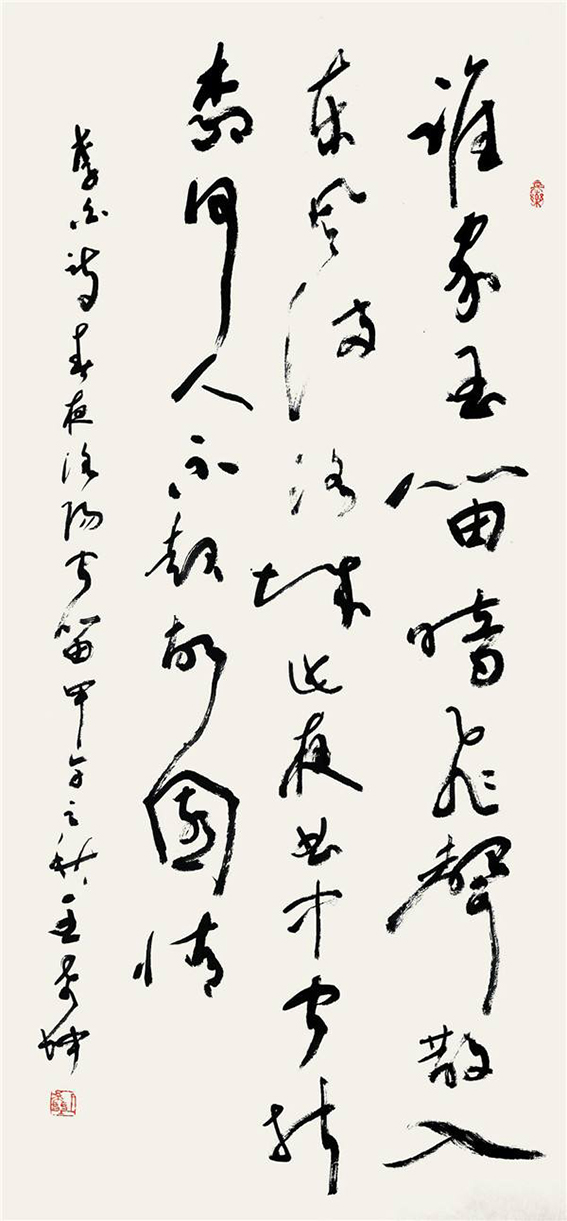 誰家玉笛暗飛聲散入
東風滿洛城此夜曲中聞折
柳何人不起故園情
李白詩春夜洛陽聞笛甲午之秋王坤